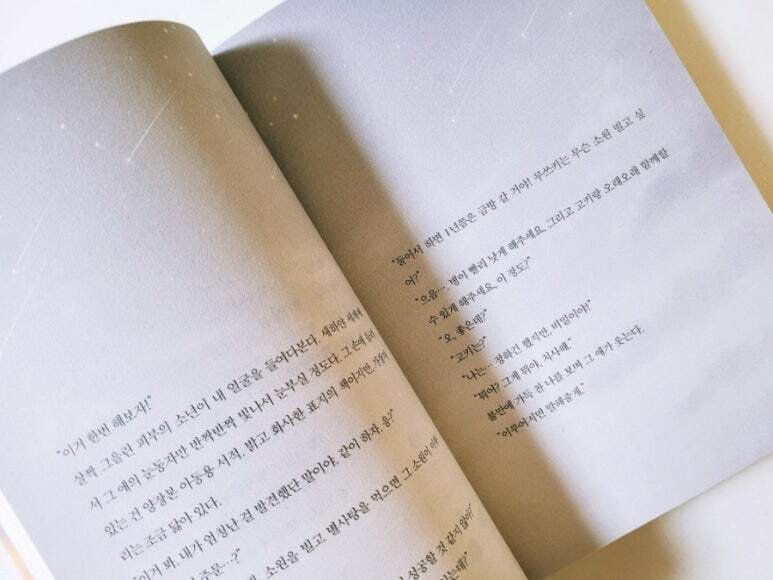 "이거 한번 해보자!"
살짝 그을린 피부의 소년이 내 얼굴을 들여다본다. 새하얀
서 그 애의 눈동자만 반짝반짝 빛나서 눈부실 정도다. 그 손에 들려
있는 건 양장본 아동용 서적. 밝고 화사한 표지의 책이지만, 가장자
리는 조금 닳아 있다.
"이거 봐. 내가 엄청난 걸 발견했단 말이야. 같이 하자. 응?"
주문…?"
소원을 빌고 별사탕을 먹으면 그 소원이
성공할 것 같지 않아?
"둘이서 하면 1년쯤은 금방 갈 거야! 무쓰키는 무슨 소원 빌고 싶
어?"
"으음…. 병이 빨리 낫게 해주세요. 그리고 고키랑 오래오래 함께할
수 있게 해주세요. 이 정도?"
"오, 좋은데?"
"고키는?"
"나는… 정하긴 했지만, 비밀이야!"
"뭐야? 그게 뭐야, 치사해."
불만에 가득 찬 나를 보며 그 애가 웃는다.
"이루어지면 말해줄게."